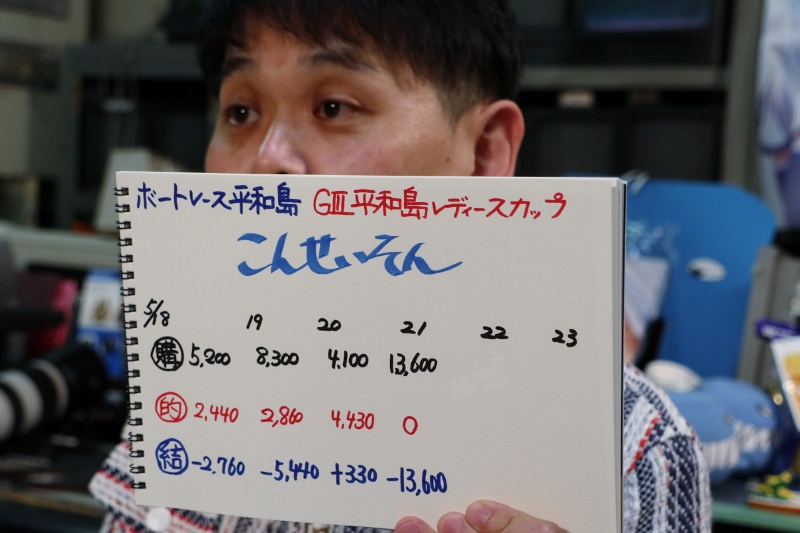 ボートレース平和島 GⅢ平和島レディースカップ
こんせいそん
5/18 19 20 21 22 23
購 5,200 8,300 4,100 13,600
的 2,440 2,860 4,430 0
結 -2,760 -5,440 +330 -13,600